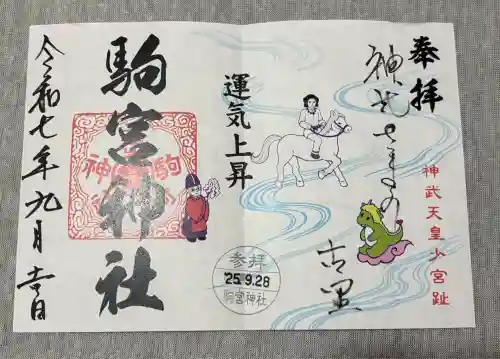 奉拝
神武さまの
古里
神武天皇少宮趾
運気上昇
駒宮神社
令和七年九月吉日
参拝
'25.9.28
駒宮神社